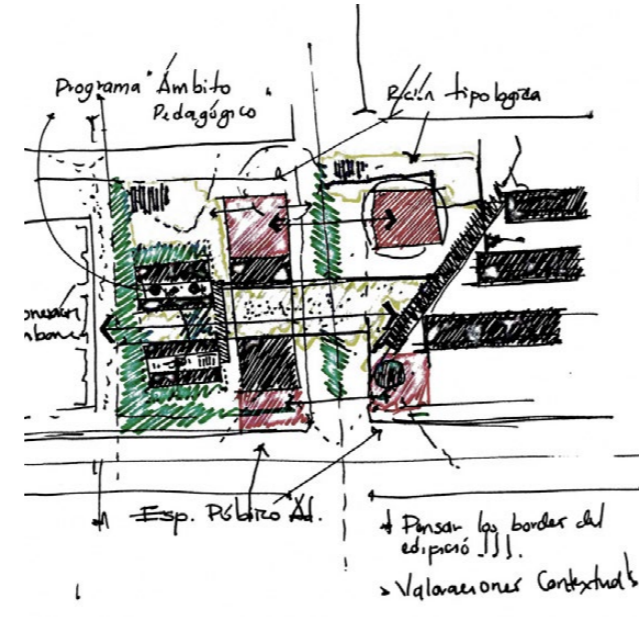 Programa Ámbito
Pedagógico
tipologica
Esp. Público Ad.
Pensar los bordes del
edificio !!!.
Valoraciones Contextual's